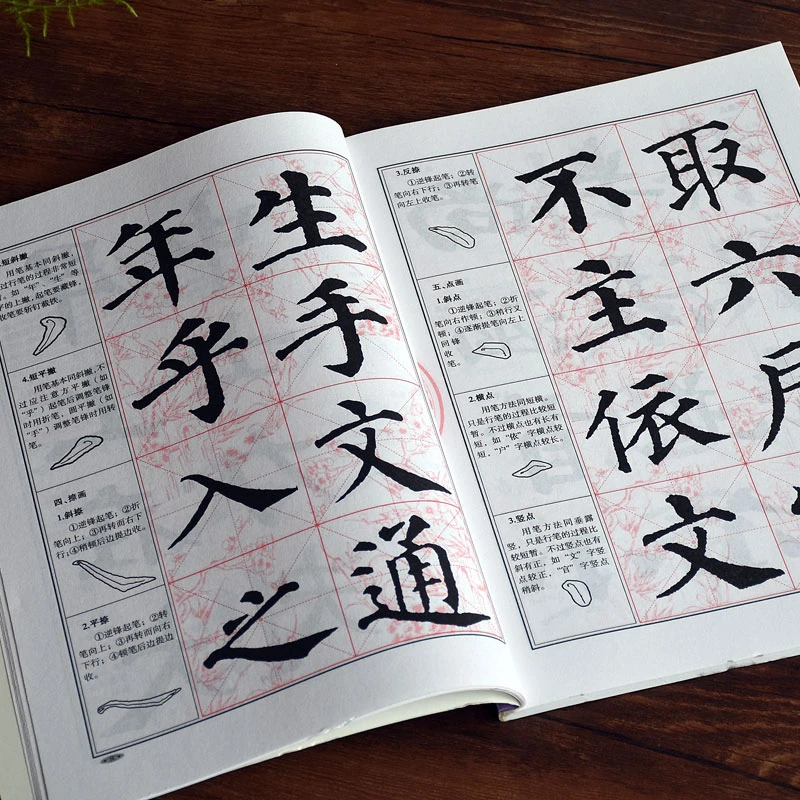 短斜撇
用笔基本同斜撇,
过行笔的过程非常短
。如“年”、“生”等
字的上撇,起笔要藏锋,
收笔要斩钉截铁。
4.短平撇
用笔基本同斜撇,不
过应注意方平撇(如
“乎”)起笔后调整笔锋
时用折笔,圆平撇(如
“手”)调整笔锋时用转
笔。
四、捺画
1.斜捺
①逆锋起笔;②折
笔向上;③再转而右下
行;④稍顿后边提边收。
2.平捺
①逆锋起笔;②转
笔向上;③再转而向右
下行;④顿笔后边提边
收。
年 生
乎 手
入 文
之 通
3.反捺
①逆锋起笔;②转
笔向右下行;③再转笔
向左上收笔。
五、点画
1.斜点
①逆锋起笔;②折
笔向右作顿;③稍行又
顿;④逐渐提笔向左上
回锋
收
笔。
2.横点
用笔方法同短横。
只是行笔的过程比较短
暂。不过横点也有长有
短,如“依”字横点较
短,“户”字横点较长。
3.竖点
用笔方法同垂露
竖,只是行笔的过程比
较短暂。不过竖点也有
斜有正,如“文”字竖
点较正,“官”字竖点
稍斜。
不 取
主 六
依
文